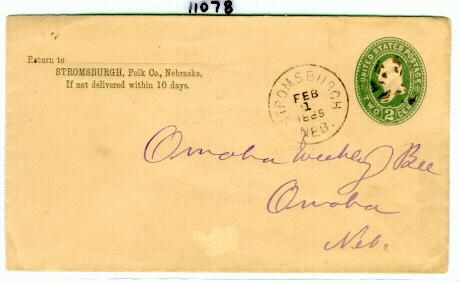 11078
Return to
STROMSBURGH, Polk Co., Nebraska,
If not delivered within 10 days.
UNITED STATES POSTAGE
TWO 2 CENTS
STROMSBURGH
FEB
1
NEB.
Omaha Weekly Bee
Omaha
Neb.